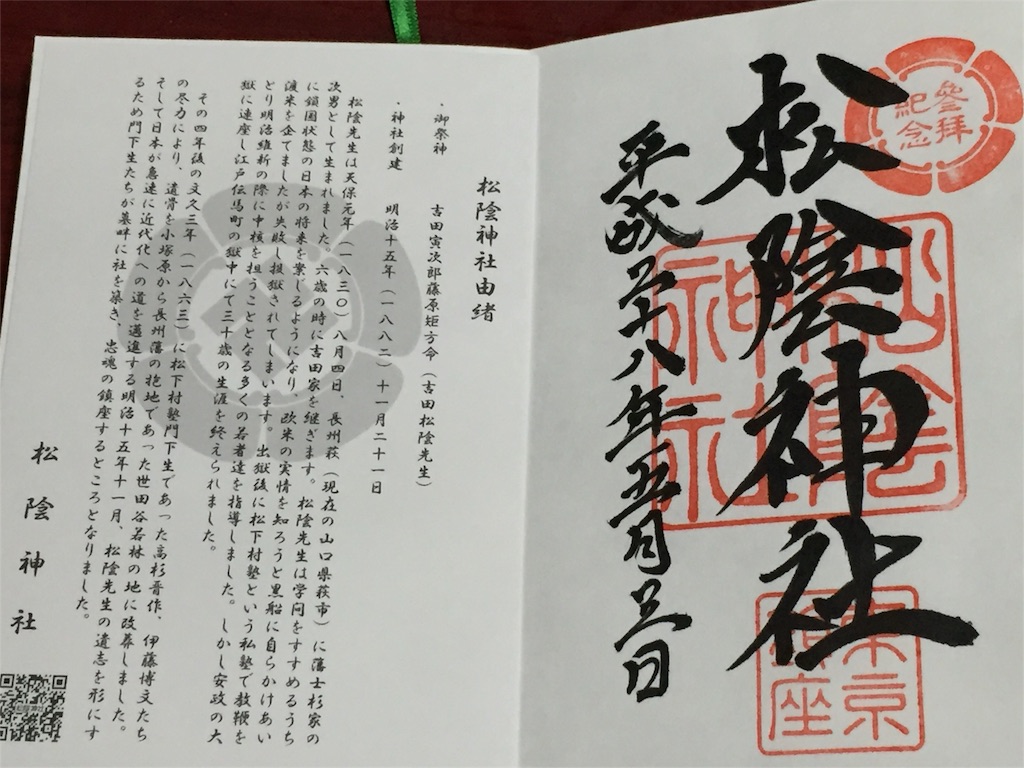 參拜
紀念
松陰神社
松陰
神社
東京
鎮座
平成二十八年五月三日
松陰神社由緒
・御祭神　吉田寅次郎藤原矩方命（吉田松陰先生）
・神社創建　明治十五年（一八八二）十一月二十一日
松陰先生は天保元年（一八三〇）八月四日、長州萩（現在の山口県萩市）に藩士杉家の
次男として生まれました。六歳の時に吉田家を継ぎます。松陰先生は学問をすすめるうち
に鎖国状態の日本の将来を案じるようになり、欧米の実情を知ろうと黒船に自らかけあい
渡米を企てましたが失敗し投獄されてしまいます。出獄後に松下村塾という私塾で教鞭を
とり明治維新の際に中核を担うこととなる多くの若者達を指導しました。しかし安政の大
獄に連座し江戸伝馬町の獄中にて三十歳の生涯を終えられました。
その四年後の文久三年（一八六三）に松下村塾門下生であった高杉晋作、伊藤博文たち
の尽力により、遺骨を小塚原から長州藩の抱地であった世田谷若林の地に改葬しました。
そして日本が急速に近代化への道を邁進する明治十五年十一月、松陰先生の遺志を形にす
るため門下生たちが墓畔に社を築き、忠魂の鎮座するところとなりました。
松陰神社